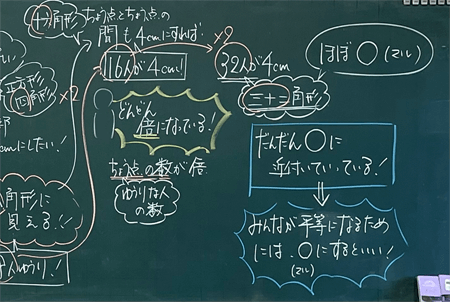 十六角形
ちょう点とちょう点の
間も4cmにすれば
16人が4cm!
×2
32人が4cm
三十二角形
ほぼ〇(マル)
正方形
四角形
×2
にしたい!
どんどん
倍になっている!
ちょう点の数が倍
ゆうりな人
の数
角形に
見える!!
ゆうり!
だんだん〇に
近付いていっている!
みんなが平等になるため
には、〇にするといい!
(マル)